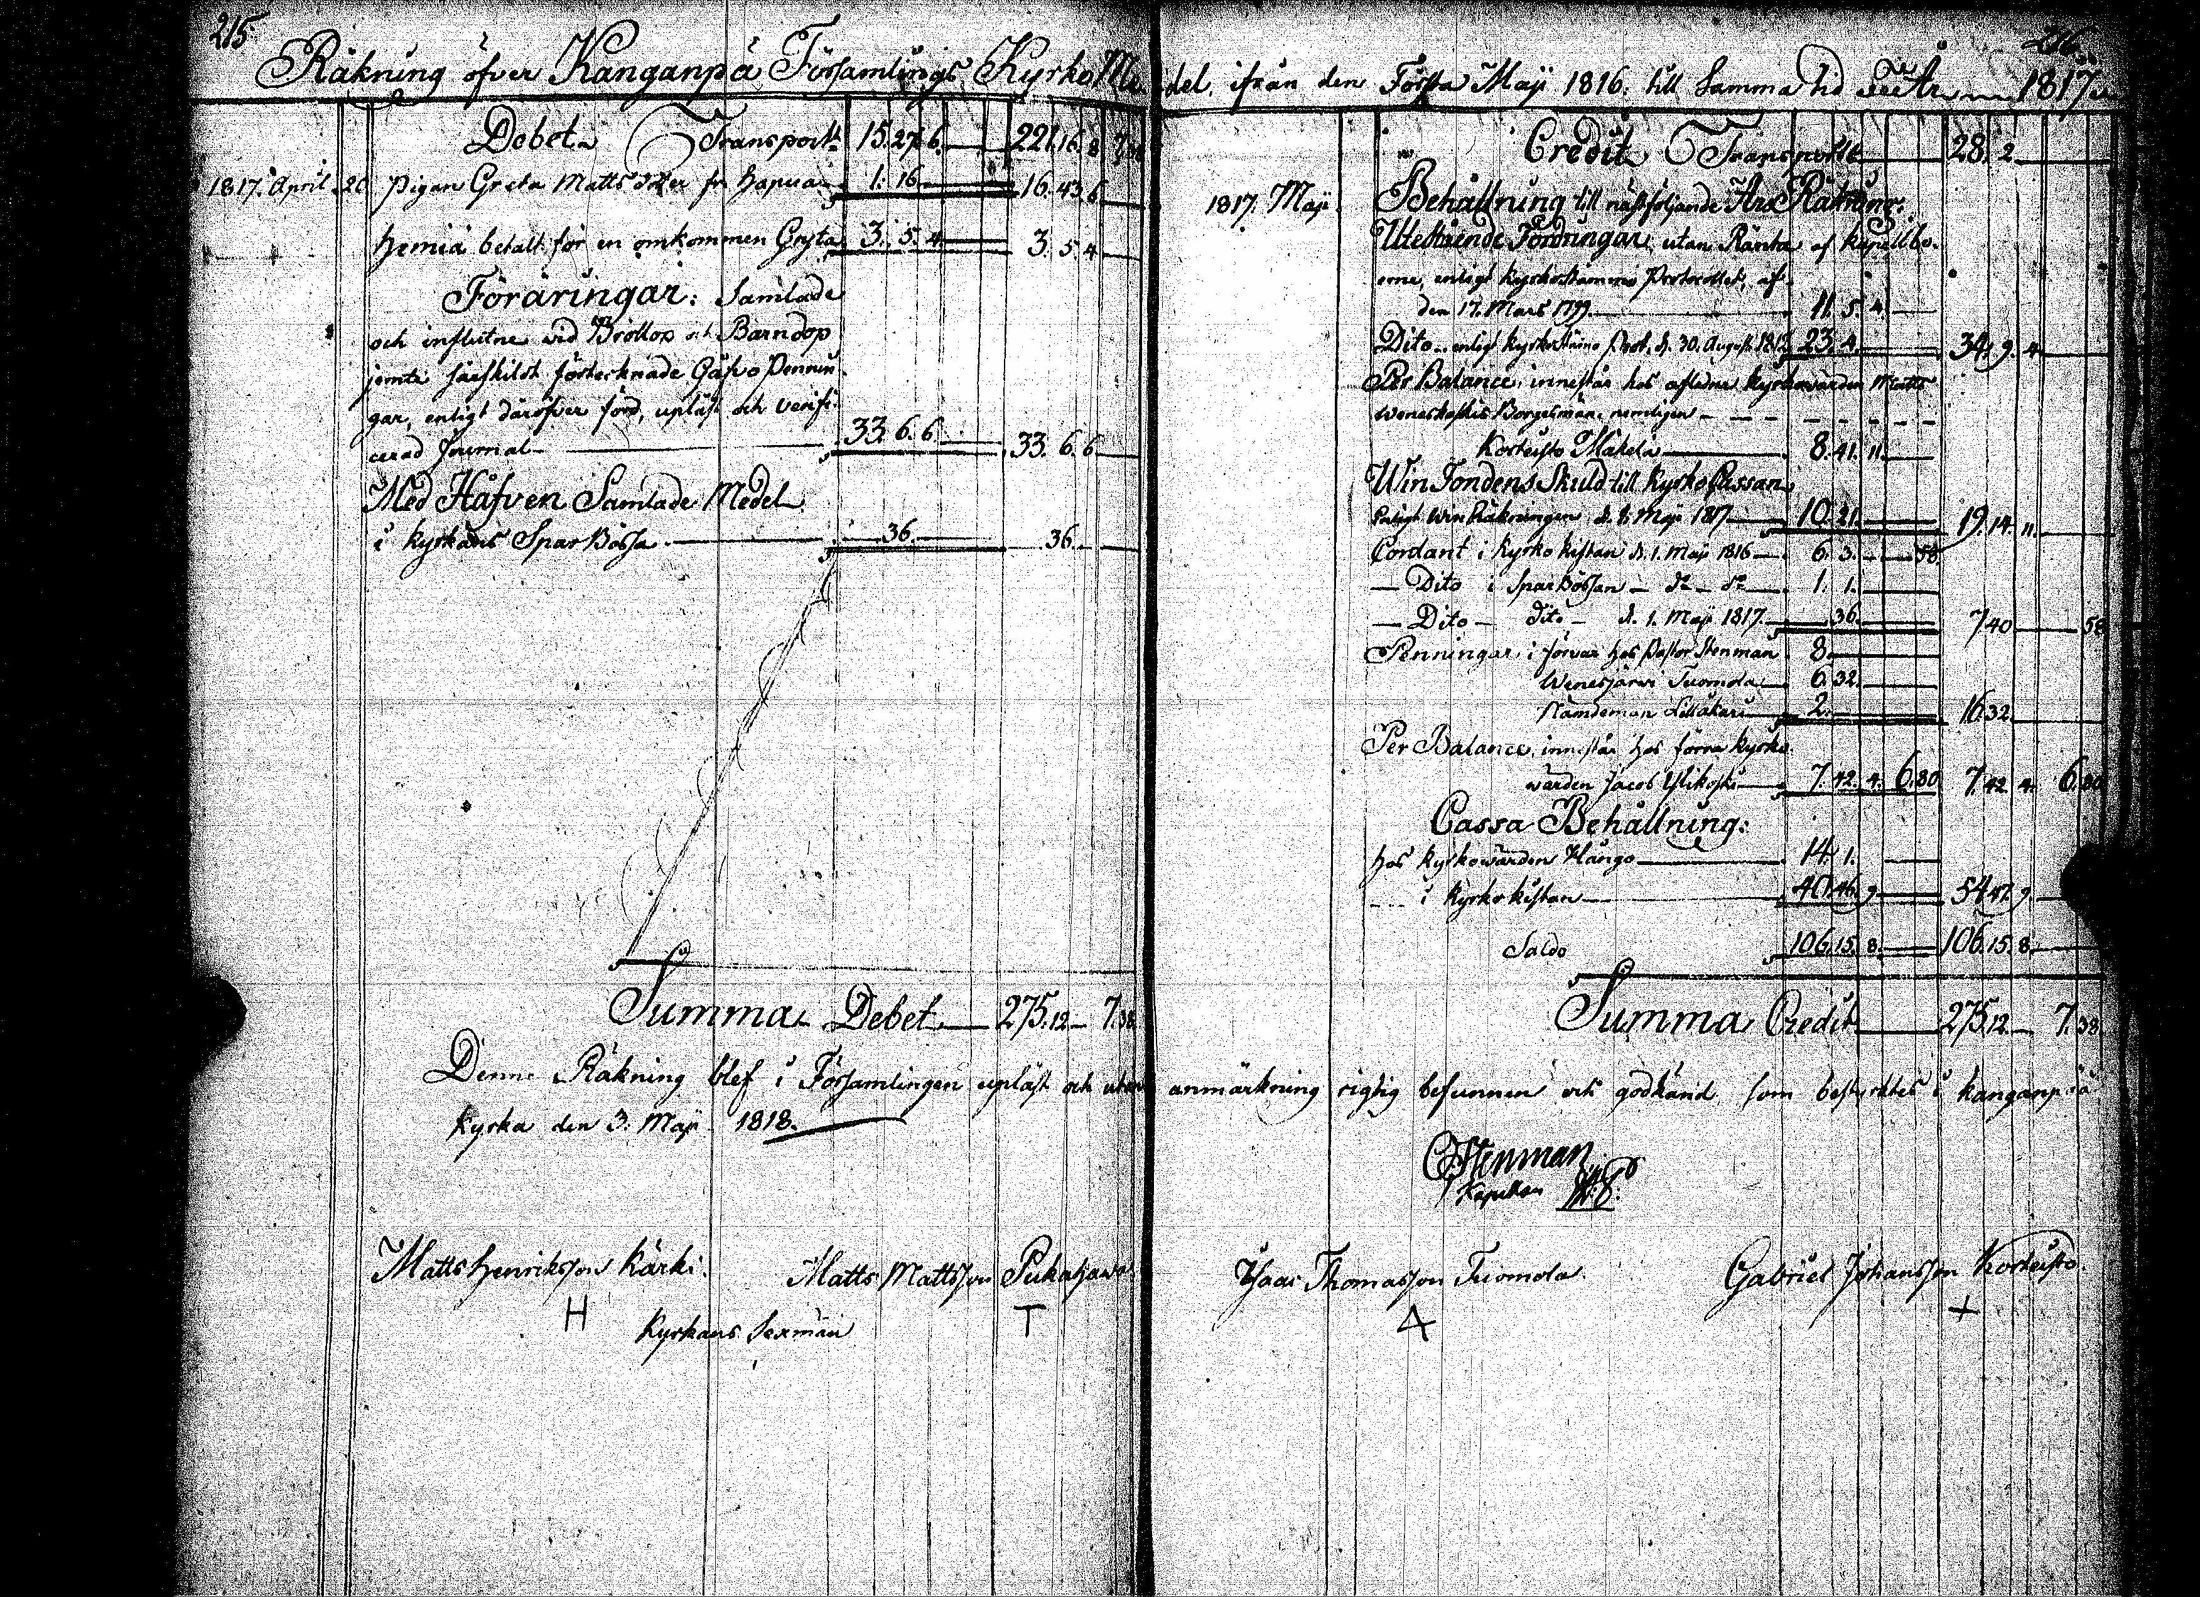 215.
Räkning öfver Kanganpä Församlings Kyrko Me
Debet Transport 15. 27. 6. 221. 16. 8 7.38
1817. April. 20. Pigan Greta Matts dotter fr. Hapua 1. 16 16. 43. 6.
Hemiä betalt för en omkommen Gryta 3. 5. 4. 3. 5. 4.
Föräringar: Samlade
och influtne vid Bröllop och Barndop
jemte särskilst förtecknade Gåfvo Pennin
gar, enligt däröfver förd, upläst och verifi-
cerad Journal 33. 6. 6. 33. 6. 6.
Med Håfven Samlade Medel
i Kyrkans Spar Bössa 36. 36.
Summa Debet 275. 12 7.38
Denne Räkning blef i Församlingen upläst och utan
Kyrka den 3. Maji 1818.
Matts Henriksson Kärki. Matts Mattsson Pukajärvi
H T
Kyrkans Sexmän
216.
del, ifrån den Första Maji 1816. till Samma tid År 1817.
Credit Transport 28. 2.
1817. Maji Behållning till nästföljande Års Räkning.
Utestående Fordringar, utan Ränta af Kapellbo-
erne, enligt Kyrkostämmo Protocollet, af
den 17. Mars 1799. 11. 5. 4.
Dito enligt Kyrkostämo Prot. d. 30. August. 1812 23. 4. 34. 9. 4.
Per Balance, innestår hos afledne Kyrkowärden Matts
Weneskoskis Borgesmän, nemligen
Korteisto Mäkelä 8. 41. 11.
Win Fondens Skuld till Kyrko Cassan
Enligt Win Räkningen d. 1. Maji 1817 10. 21. 19. 14. 11.
Contant i Kyrko Kistan d. 1. Maji 1816 6. 3. 58.
Dito i Spar Bössan do do 1. 1.
Dito dito d. 1. Maji 1817. 36. 7. 40 58
Penningar i förvar hos Pastor Stenman 8.
Wenesjärvi Tuomola 6. 32.
Nämdeman Lilläkari 2. 16. 32
Per Balance, innestår hos förra Kyrko
wärden Jacob Ylikoski 7. 42. 4. 6.80 7. 42 4. 6.80
Cassa Behållning:
hos Kyrkowärden Hängo 14. 1.
i Kyrko kistan 40. 46. 9 54. 47. 9.
Saldo 106. 15. 8. 106. 15. 8.
Summa Credit 275. 12. 7. 38
anmärkning rigtig befunnen och godkänd, som bestyrktes i Kanganpää
Stenman
Kapellan
Isaac Thomasson Tuomola. Gabriel Johansson Korteisto.
+